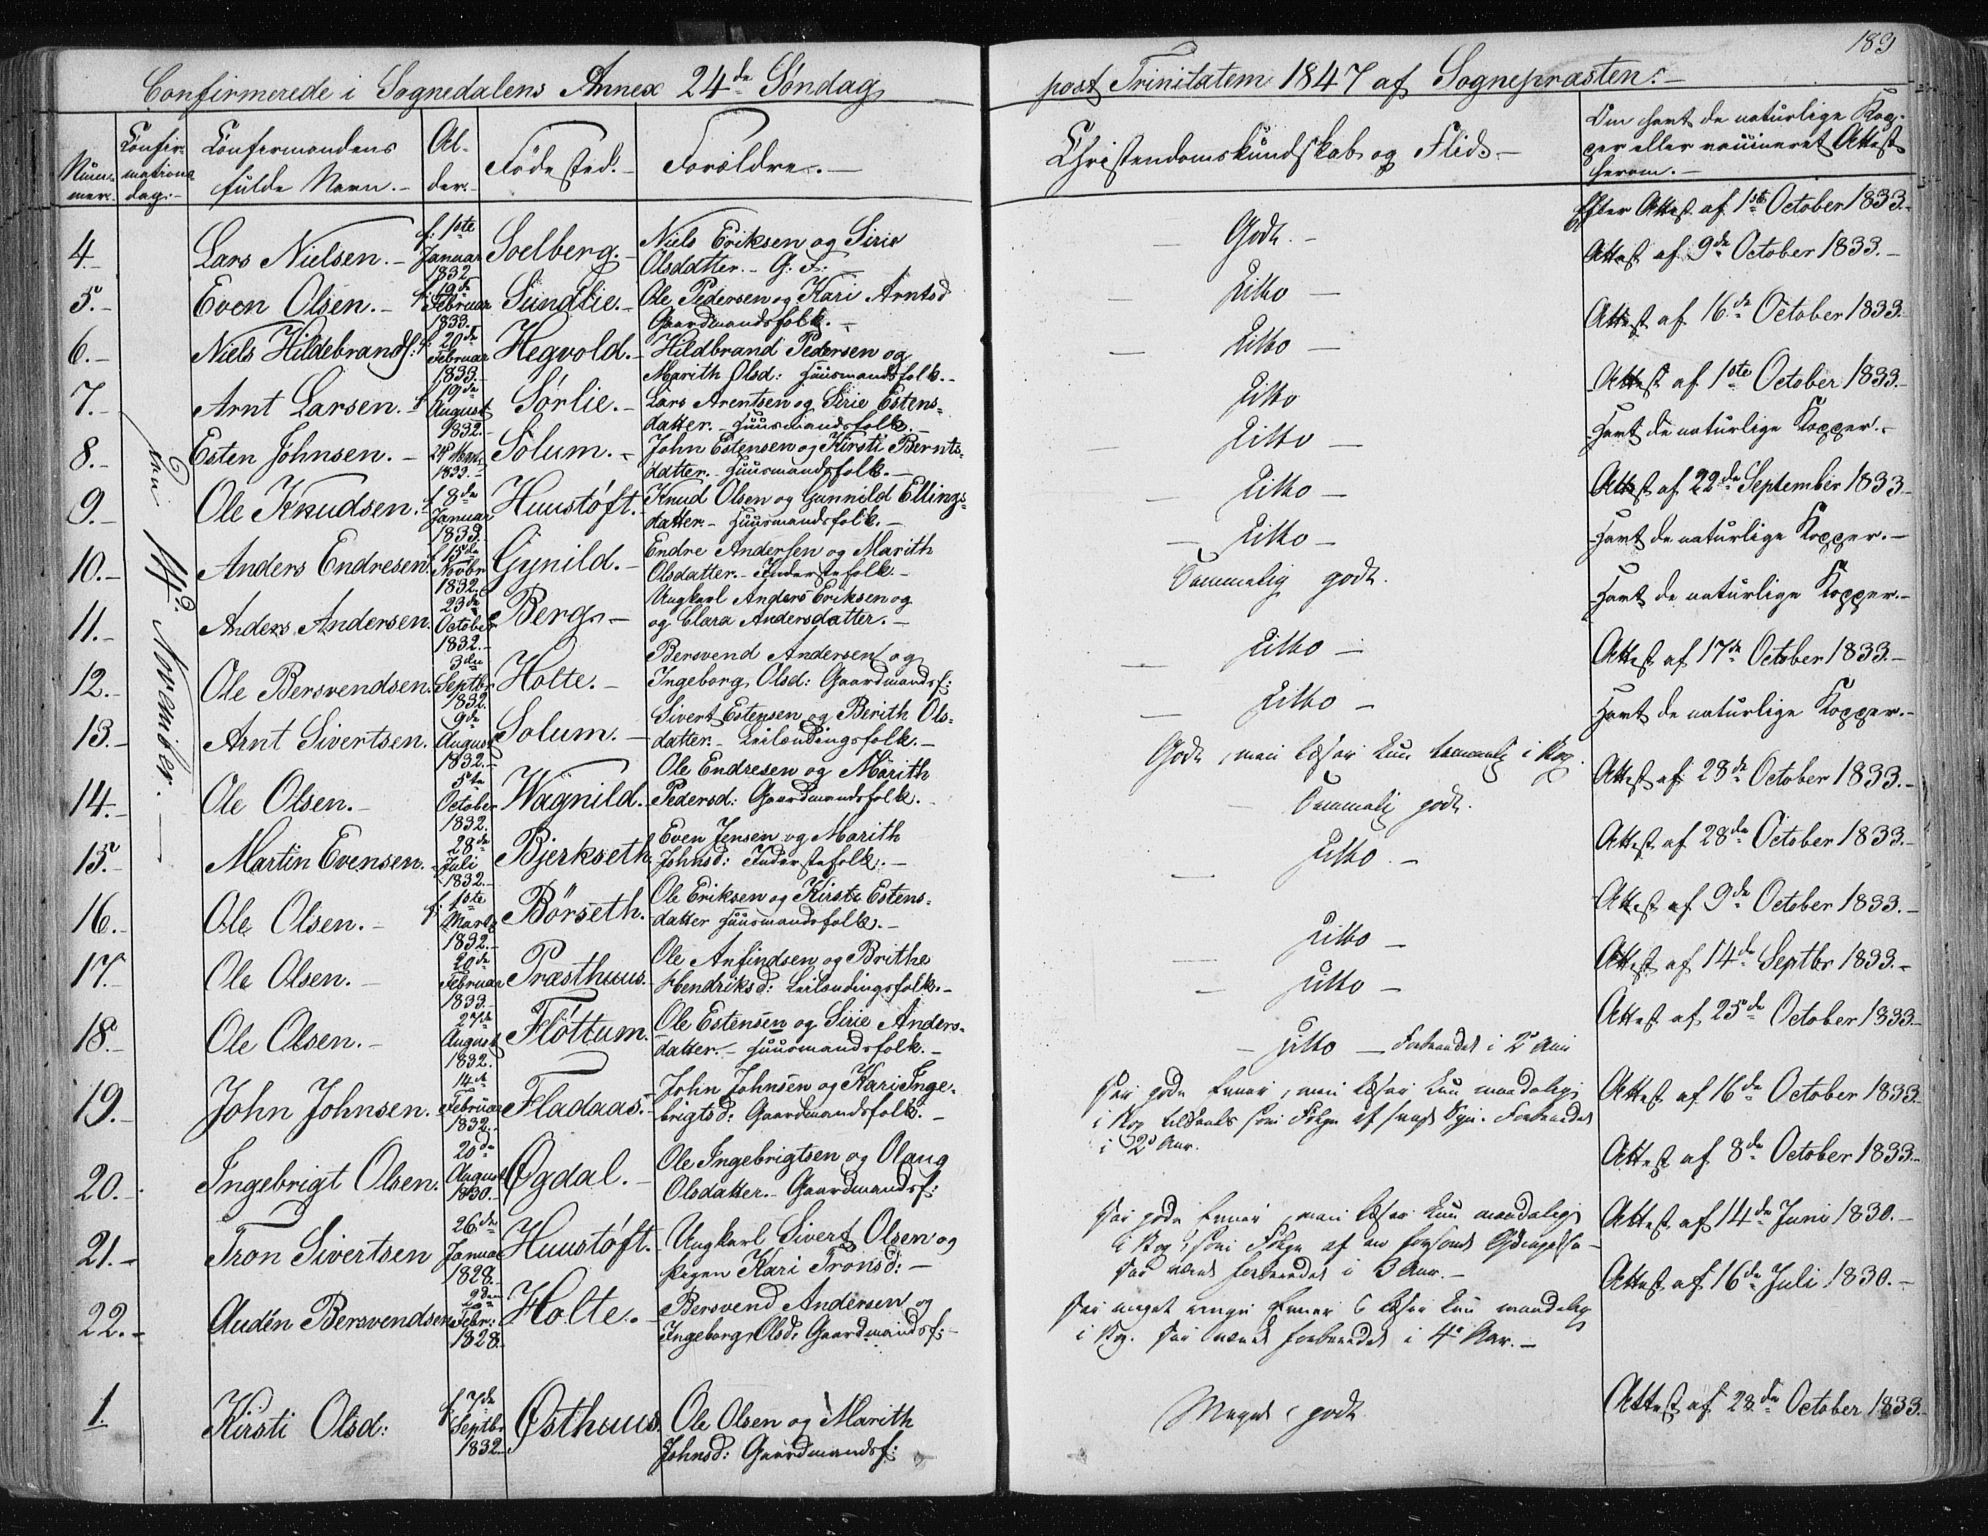 189
Confirmerede i Sognedalens Annex 24de Søndag post Trinitatem 1847 af Sognepræsten.-
Num-
mer.
Confir-
mations
dag:-
Confirmandens
fulde Navn.-
Al-
der.-
Fødested.-
Forældre.-
Christendomskundskab og Flid.-
Om havt de naturlige Kop-
per eller vaccineret Attest
herom.-
Den 14de November.-
4.- Lars Nielsen.- f. 1ste Januar 1832 Soelberg.- Niels Eriksen og Sirie
Olsdatter.- G: F:-
- Godt.-
Efter Attest af 1ste October 1833.-
5.- Even Olsen.- f. 19de Februar 1833. Sundlie.- Ole Pedersen og Kari Arntsd
Gaardmandsfolk.-
- Ditto -
Attest af 9de October 1833.-
6.- Niels Hildebrands: f. 20de Februar 1833.- Hegvold.- Hildbrand Pedersen og
Marith Olsd: Huusmandsfolk.-
- Ditto -
Attest af 16de October 1833.-
7.- Arnt Larsen.- f 19de August 1832.- Sørlie.- Lars Arentsen og Sirie Estens-
datter.- Huusmandsfolk.-
Ditto
Attest af 1ste October 1833.-
8.- Esten Johnsen.- 1833.- Solum.- John Estensen og Kirsti Bernts-
datter.- Huusmandsfolk.-
- Ditto -
Havt de naturlige Kopper.-
9.- Ole Knudsen.- f. 8de Januar 1833. Huustøft.- Knud Olsen og Gunnild Ellings-
datter.- Huusmandsfolk.-
- Ditto -
Attest af 22de September 1833.-
10.- Anders Endresen. f. 15de Novbr 1832. Gynild.- Endre Andersen og Marith
Olsdatter.- Inderstefolk.-
- Ditto -
Havt de naturlige Kopper.-
11.- Anders Andersen. 23de October 1832.- Berg.- Ungkarl Anders Eriksen og
og Clara Andersdatter.-
Temmelig godt.
Havt de naturlige Kopper.-
12.- Ole Bersvendsen. 3die Septbr 1832. Holte.- Bersvend Andersen og
Ingeborg Olsd: Gaardmandsf:
- Ditto -
Attest af 17de October 1833.-
13.- Arnt Sivertsen. 9de August 1832.- Solum.- Sivert Estensen og Berith Ols-
datter.- Leilændingsfolk.-
- Ditto -
Havt de naturlige Kopper.-
14.- Ole Olsen.- 5te October 1832. Wagnild.- Ole Endresen og Marith
Pedersd: Gaardmandsfolk.-
Godt, men læser kun temmelig i Bog.
Attest af 28de October 1833.-
15.- Martin Evensen. 28de Juli 1832.- Bjerkseth. Even Jensen og Marith
Johnsd: Inderstefolk.-
- Temmelig godt.
Attest af 28de October 1833.-
16.- Ole Olsen.- f. 1ste Marts 1832.- Børseth. Ole Eriksen og Kirsti Estens-
datter Huusmandsfolk.-
- Ditto.-
Attest af 9de October 1833.-
17.- Ole Olsen.- 20de Februar 1833.- Præsthuus. Ole Anfindsen og Brithe
Hendriksd: Leilændingsfolk.-
- Ditto -
Attest af 14de Septbr 1833.-
18.- Ole Olsen.- 27de August 1832. Fløttum. Ole Estensen og Sirie Anders-
datter.- Huusmandsfolk.-
- Ditto -
Attest af 25de October 1833.-
19.- John Johnsen. 14de Februar 1832. Fladaas.- John Johnsen og Kari Inge-
brigtsd: Gaardmandsfolk.-
- Ditto - Forberedet i 2 Aar
Attest af 16de October 1833.
20.- Ingebrigt Olsen. 20de August 1830.- Øgdal.- Ole Ingebrigtsen og Olaug
Olsdatter.- Gaardmandsf:
Har gode Evner, men læser kun maadelig
i Bog som Følge af svagt Syn. Forberedet
i 2 Aar.
Attest af 8de October 1833.-
21.- Tron Sivertsen 26de Januar 1828.- Huustøft.- Ungkarl Sivert Olsen og
Pigen Kari Tronsd:-
Har gode Evner, men læser kun maadelig
i Bog, som Følge af en forsømt Opdragelse
Har været forberedet i 3 Aar.-
Attest af 14de Juni 1830.-
22.- Auden Bersvendsen 2den Febr: 1828.- Holte.- Bersvend Andersen og
Ingeborg Olsd: Gaardmandsf:-
Har meget ringe Evner & læser kun maadelig
i Bog. Har været forberedet i 4 Aar.-
Attest af 16de Juli 1830.-
1. Kirsti Olsd: f. 7de Septbr 1832 Østhuus. Ole Olsen og Marith
Johnsd: Gaardmandsf:
Meget godt
Attest af 28de October 1833.-